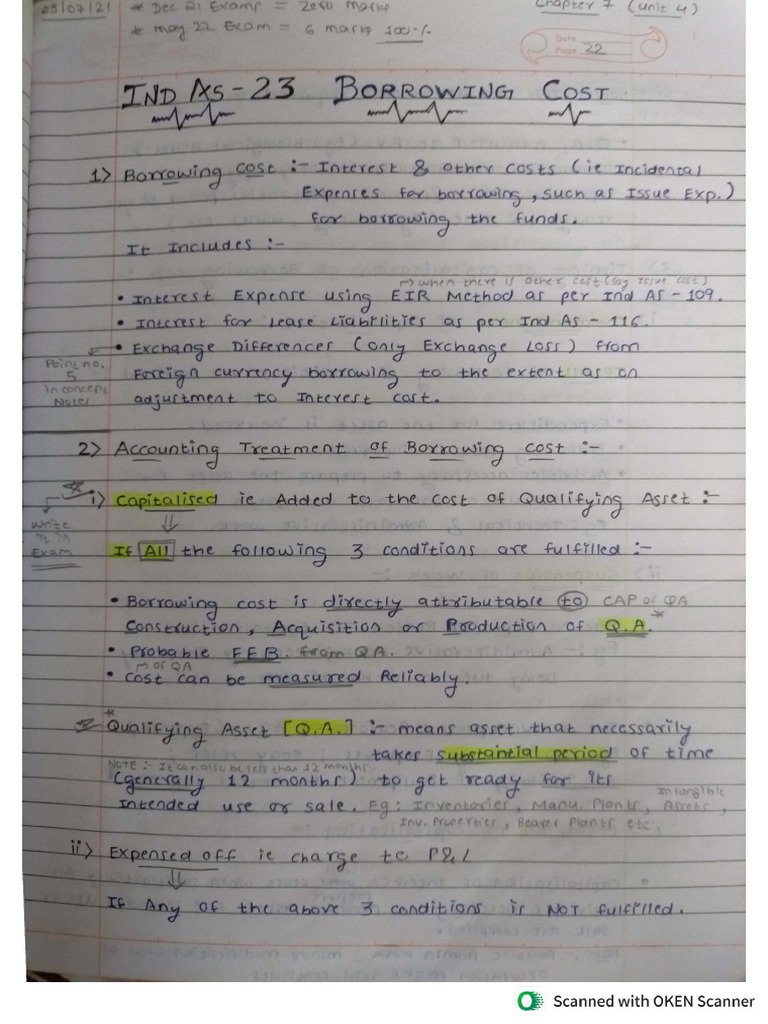 25/07/21
* Dec 21 Exams = Zero Marks
* May 22 Exam = 6 marks 100%
Chapter 7 (unit 4)
Date
Page 22
IND AS-23 BORROWING COST
1) Borrowing cost :- Interest & other costs (ie Incidental
Expenses for borrowing, such as Issue Exp.)
for borrowing the funds.
It Includes :-
→ when there is other cost (say Issue cost)
• Interest Expense using EIR Method as per Ind AS - 109.
• Interest for Lease Liabilities as per Ind AS - 116.
• Exchange Differences (only Exchange Loss) from
Foreign currency borrowing to the extent as an
adjustment to Interest cost.
Point no.
5
in concern
Notes
2) Accounting Treatment of Borrowing cost :-
i) Capitalised ie Added to the cost of Qualifying Asset :-
Write
in
Exam
If All the following 3 conditions are fulfilled :-
• Borrowing cost is directly attributable to CAP of QA
Construction, Acquisition or Production of Q.A.*
• Probable FEB. from QA.
→ of QA
• Cost can be measured Reliably.
* Qualifying Asset [Q.A.] :- means asset that necessarily
takes substantial period of time
NOTE :- It can also be less than 12 months
(generally 12 months) to get ready for its
Intended use or sale. Eg: Inventories, Manu. Plants, Intangible Assets,
Inv. Properties, Bearer Plants etc.
ii) Expensed off ie charge to P&L
If Any of the above 3 conditions is NOT fulfilled.
Scanned with OKEN Scanner